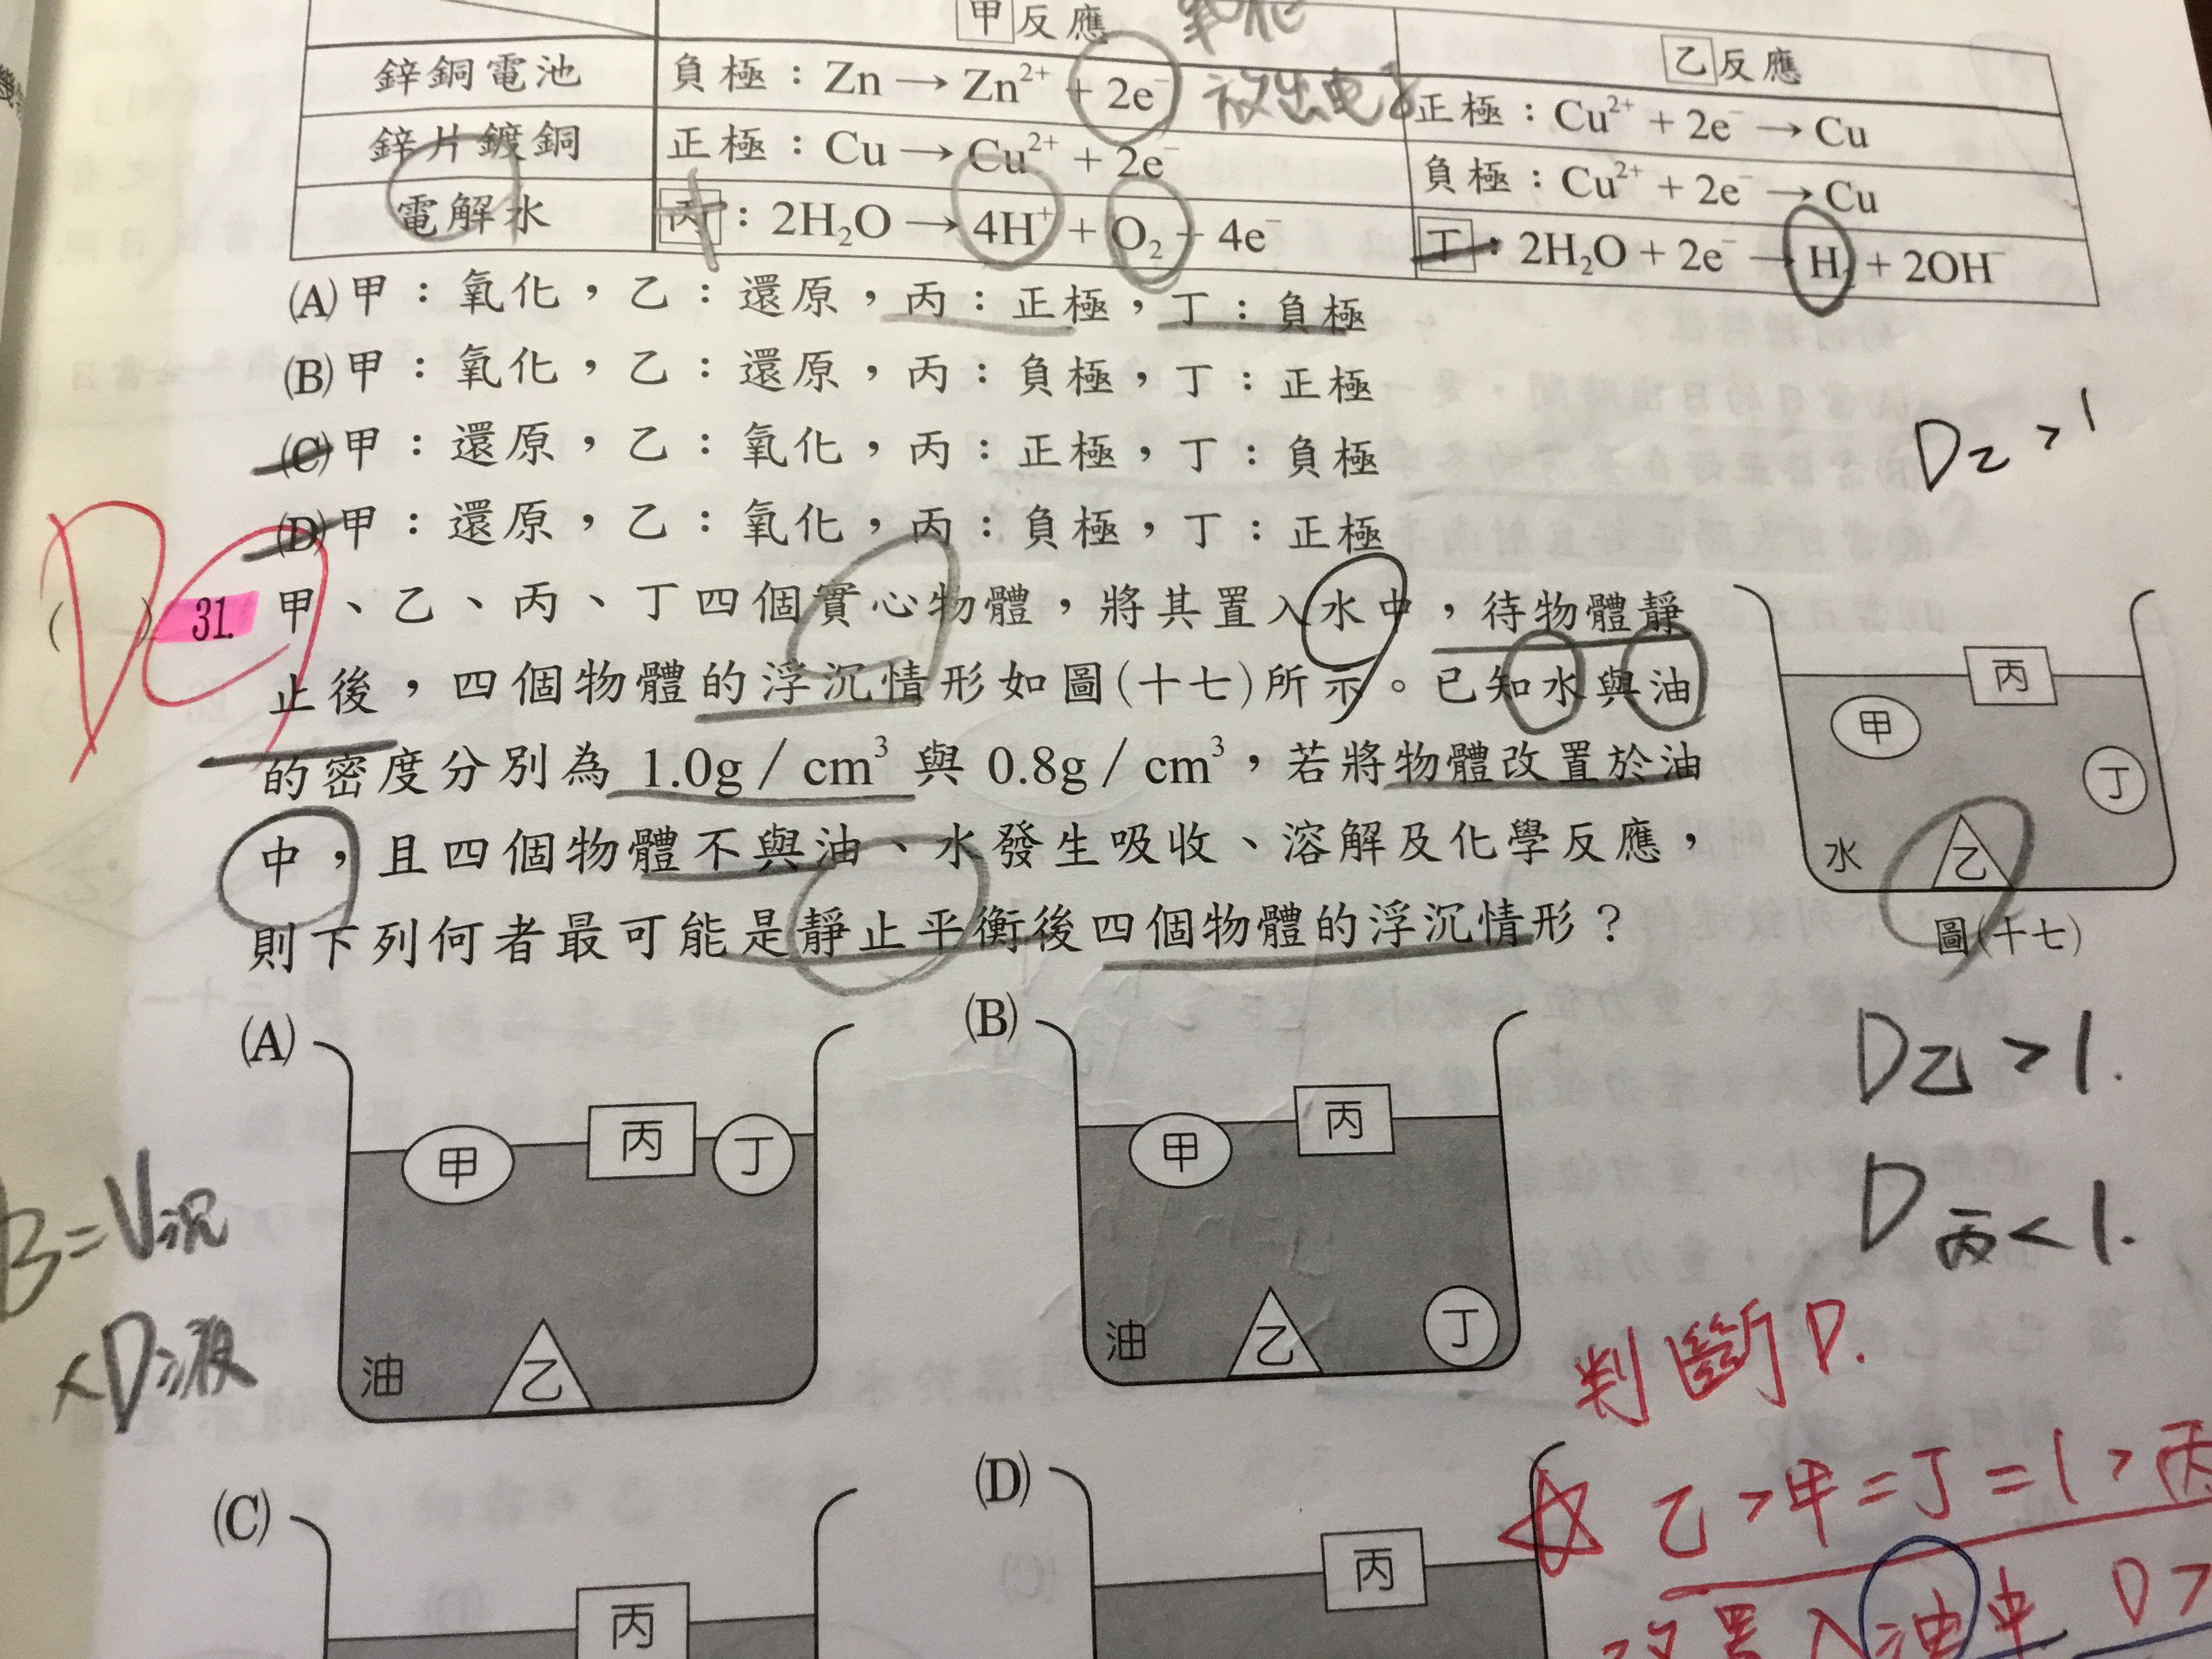 甲反應 氧化
乙反應
鋅銅電池 負極：Zn → Zn²⁺ + 2e⁻ 放出电子 正極：Cu²⁺ + 2e⁻ → Cu
鋅片鍍銅 正極：Cu → Cu²⁺ + 2e⁻ 負極：Cu²⁺ + 2e⁻ → Cu
電解水 丙：2H₂O → 4H⁺ + O₂ + 4e⁻ 丁：2H₂O + 2e⁻ → H₂ + 2OH⁻
(A)甲：氧化，乙：還原，丙：正極，丁：負極
(B)甲：氧化，乙：還原，丙：負極，丁：正極
(C)甲：還原，乙：氧化，丙：正極，丁：負極
(D)甲：還原，乙：氧化，丙：負極，丁：正極
D乙 > 1
( D ) 31. 甲、乙、丙、丁四個實心物體，將其置入水中，待物體靜
止後，四個物體的浮沉情形如圖(十七)所示。已知水與油
的密度分別為 1.0g／cm³ 與 0.8g／cm³，若將物體改置於油
中，且四個物體不與油、水發生吸收、溶解及化學反應，
則下列何者最可能是靜止平衡後四個物體的浮沉情形？
丙
甲
丁
水
乙
圖(十七)
(A)
甲 丙 丁
油 乙
(B)
甲 丙
油 乙 丁
D乙 > 1.
D丙 < 1.
B = V沉
× D液
判斷 D.
乙 > 甲 = 丁 = 1 > 丙
改置入油中 D >
(C)
丙
(D)
丙